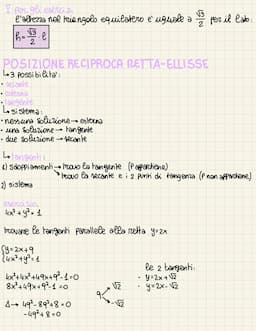 ! per gli esercizi
l'altezza nel triangolo equilatero è uguale a √3/2 per il lato:
h = √3/2 · l
POSIZIONE RECIPROCA RETTA-ELLISSE
↳ 3 possibilità:
• secante
• esterna
• tangente
↳ sistema:
• nessuna soluzione → esterna
• una soluzione → tangente
• due soluzioni → secante
↳ tangenti:
1) sdoppiamenti → trovo la tangente (P appartiene)
↳ trovo la secante e i 2 punti di tangenza (P non appartiene)
2) sistema
esercizio:
4x²+y²=1
trovare le tangenti parallele alla retta y=2x
{y=2x+q
{4x²+y²=1
4x²+4x²+4qx+q²-1=0
8x²+4qx+q²-1=0
Δ→ 4q²-8q²+8=0
-4q²+8=0
q → √2
→ -√2
le 2 tangenti:
• y=2x+√2
• y=2x-√2